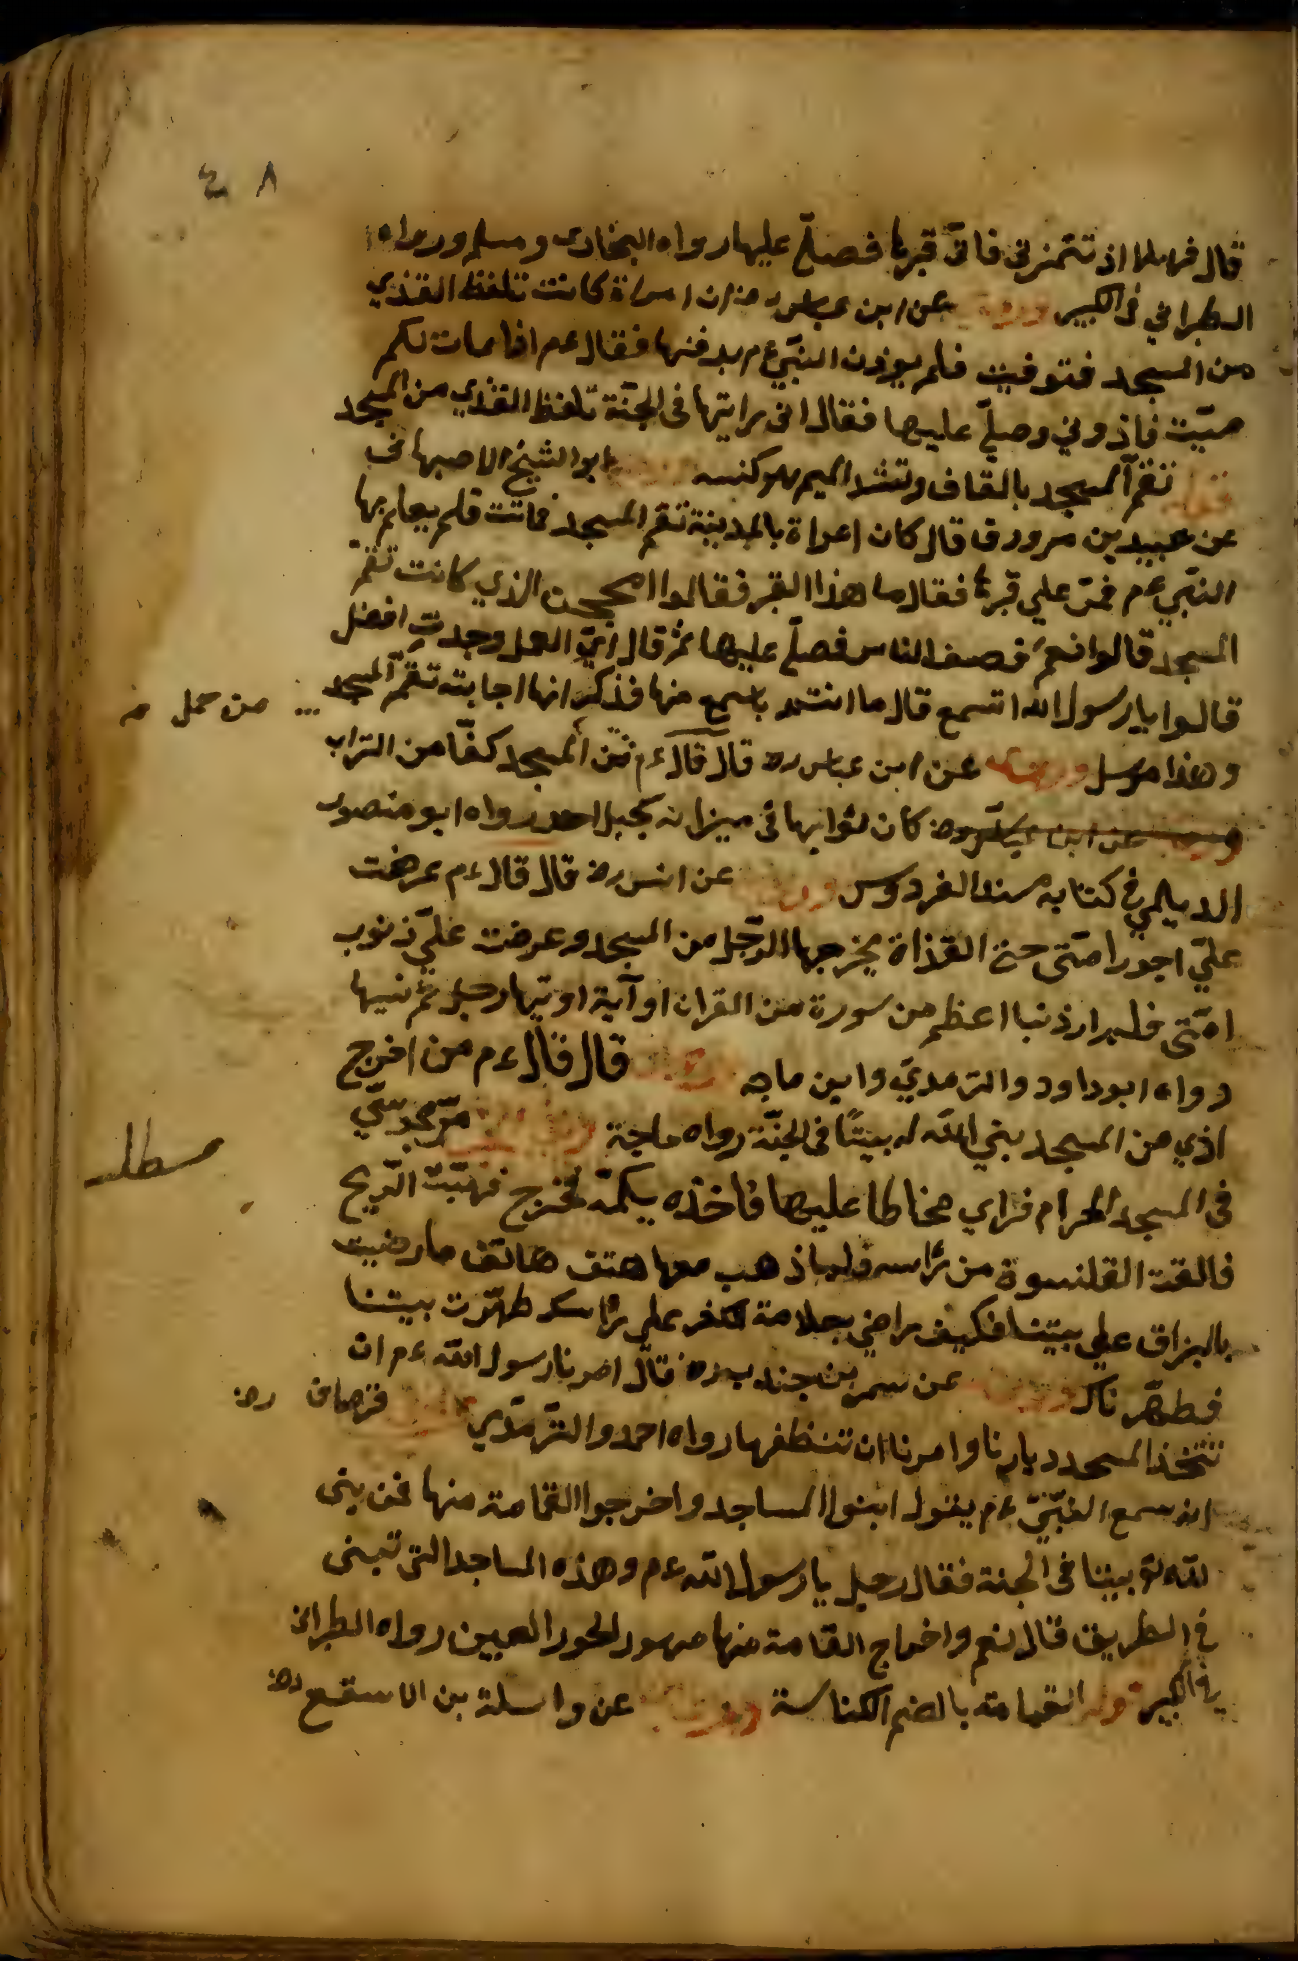 ٤٨
قال فهلا اذنتمونى فاتى قبرها فصلّى عليها رواه البخارى ومسلم ورواه
الطبراني فى الكبير وروى عن ابن عباس رضه ان امراة كانت تلقط القذي
من المسجد فتوفيت فلم يوذن النبيّ ءم بدفنها فقال ءم اذا مات لكم
ميّت فاذنوني وصلّى عليها فقال انى رايتها فى الجنّة تلقط القذي من المسجد
قوله تقمّ المسجد بالقاف وتشد الميم هو كنسه ابو الشيخ الاصبهانى
عن عبيد بن مرزوق قال كان امراة بالمدينة تقم المسجد فماتت فلم يعلم بها
النبّي ءم فمرّ علي قبرها فقال ما هذا القبر فقالوا ام محجن الذي كانت تقمّ
المسجد قالوا نعم فصف الناس فصلّى عليها ثم قال ايّ العمل وجدتِ افضل
قالوا يا رسول الله اتسمع قال ما انتم باسمع منها فذكر انها اجابته تقمّ المسجد
وهذا مرسل عن ابن عباس رضه قال قال ءم من المسجد كفّا من التراب
من حمل منه
كان ثوابها فى ميزانه كجبل احد رواه ابو منصور
الديلمي في كتابه مسند الفردوس عن انس رضه قال قال ءم عرضت
عليّ اجور امّتى حتى القذاة يخرجها الرّجل من المسجد وعرضت عليّ ذنوب
امّتى فلم ار ذنبا اعظم من سورة من القران او آية اوتيها رجل ثم نسيها
رواه ابو داود والترمذيّ وابن ماجه قال قال ءم من اخرج
اذي من المسجد بني الله له بيتًا فى الجنّة رواه ماجة مرّ مجوسّي
مطلب
فى المسجد الحرام فراي مخاطا عليها فاخذه بكمّه فخرج فهبّت الرّيح
فالقت القلنسوة من رأسه فلما ذهب معها هتف هاتف ما رضيت
بالبزاق علي بيتنا فكيف راضي بعلامة الكفر علي رأسك طهّرت بيتنا
فطهّرناك عن سمر بن جندب رضه قال امرنا رسول الله ءم ان
نتّخذ المسجد ديارنا وامرنا ان تنظفها رواه احمد والتّرمذّي قرصافه رضه
انه سمع النبّي ءم يقول ابنوا المساجد واخرجوا القمامة منها فمن بنى
لله تع بيتا فى الجنة فقال رجل يا رسول الله ءم وهذه المساجد التى تبنى
في الطريق قال نعم واخراج القمامة منها مهور الحور العين رواه الطبرانى
في الكبير قوله القمامة بالضم الكناسة عن واسلة بن الاسقع رضه